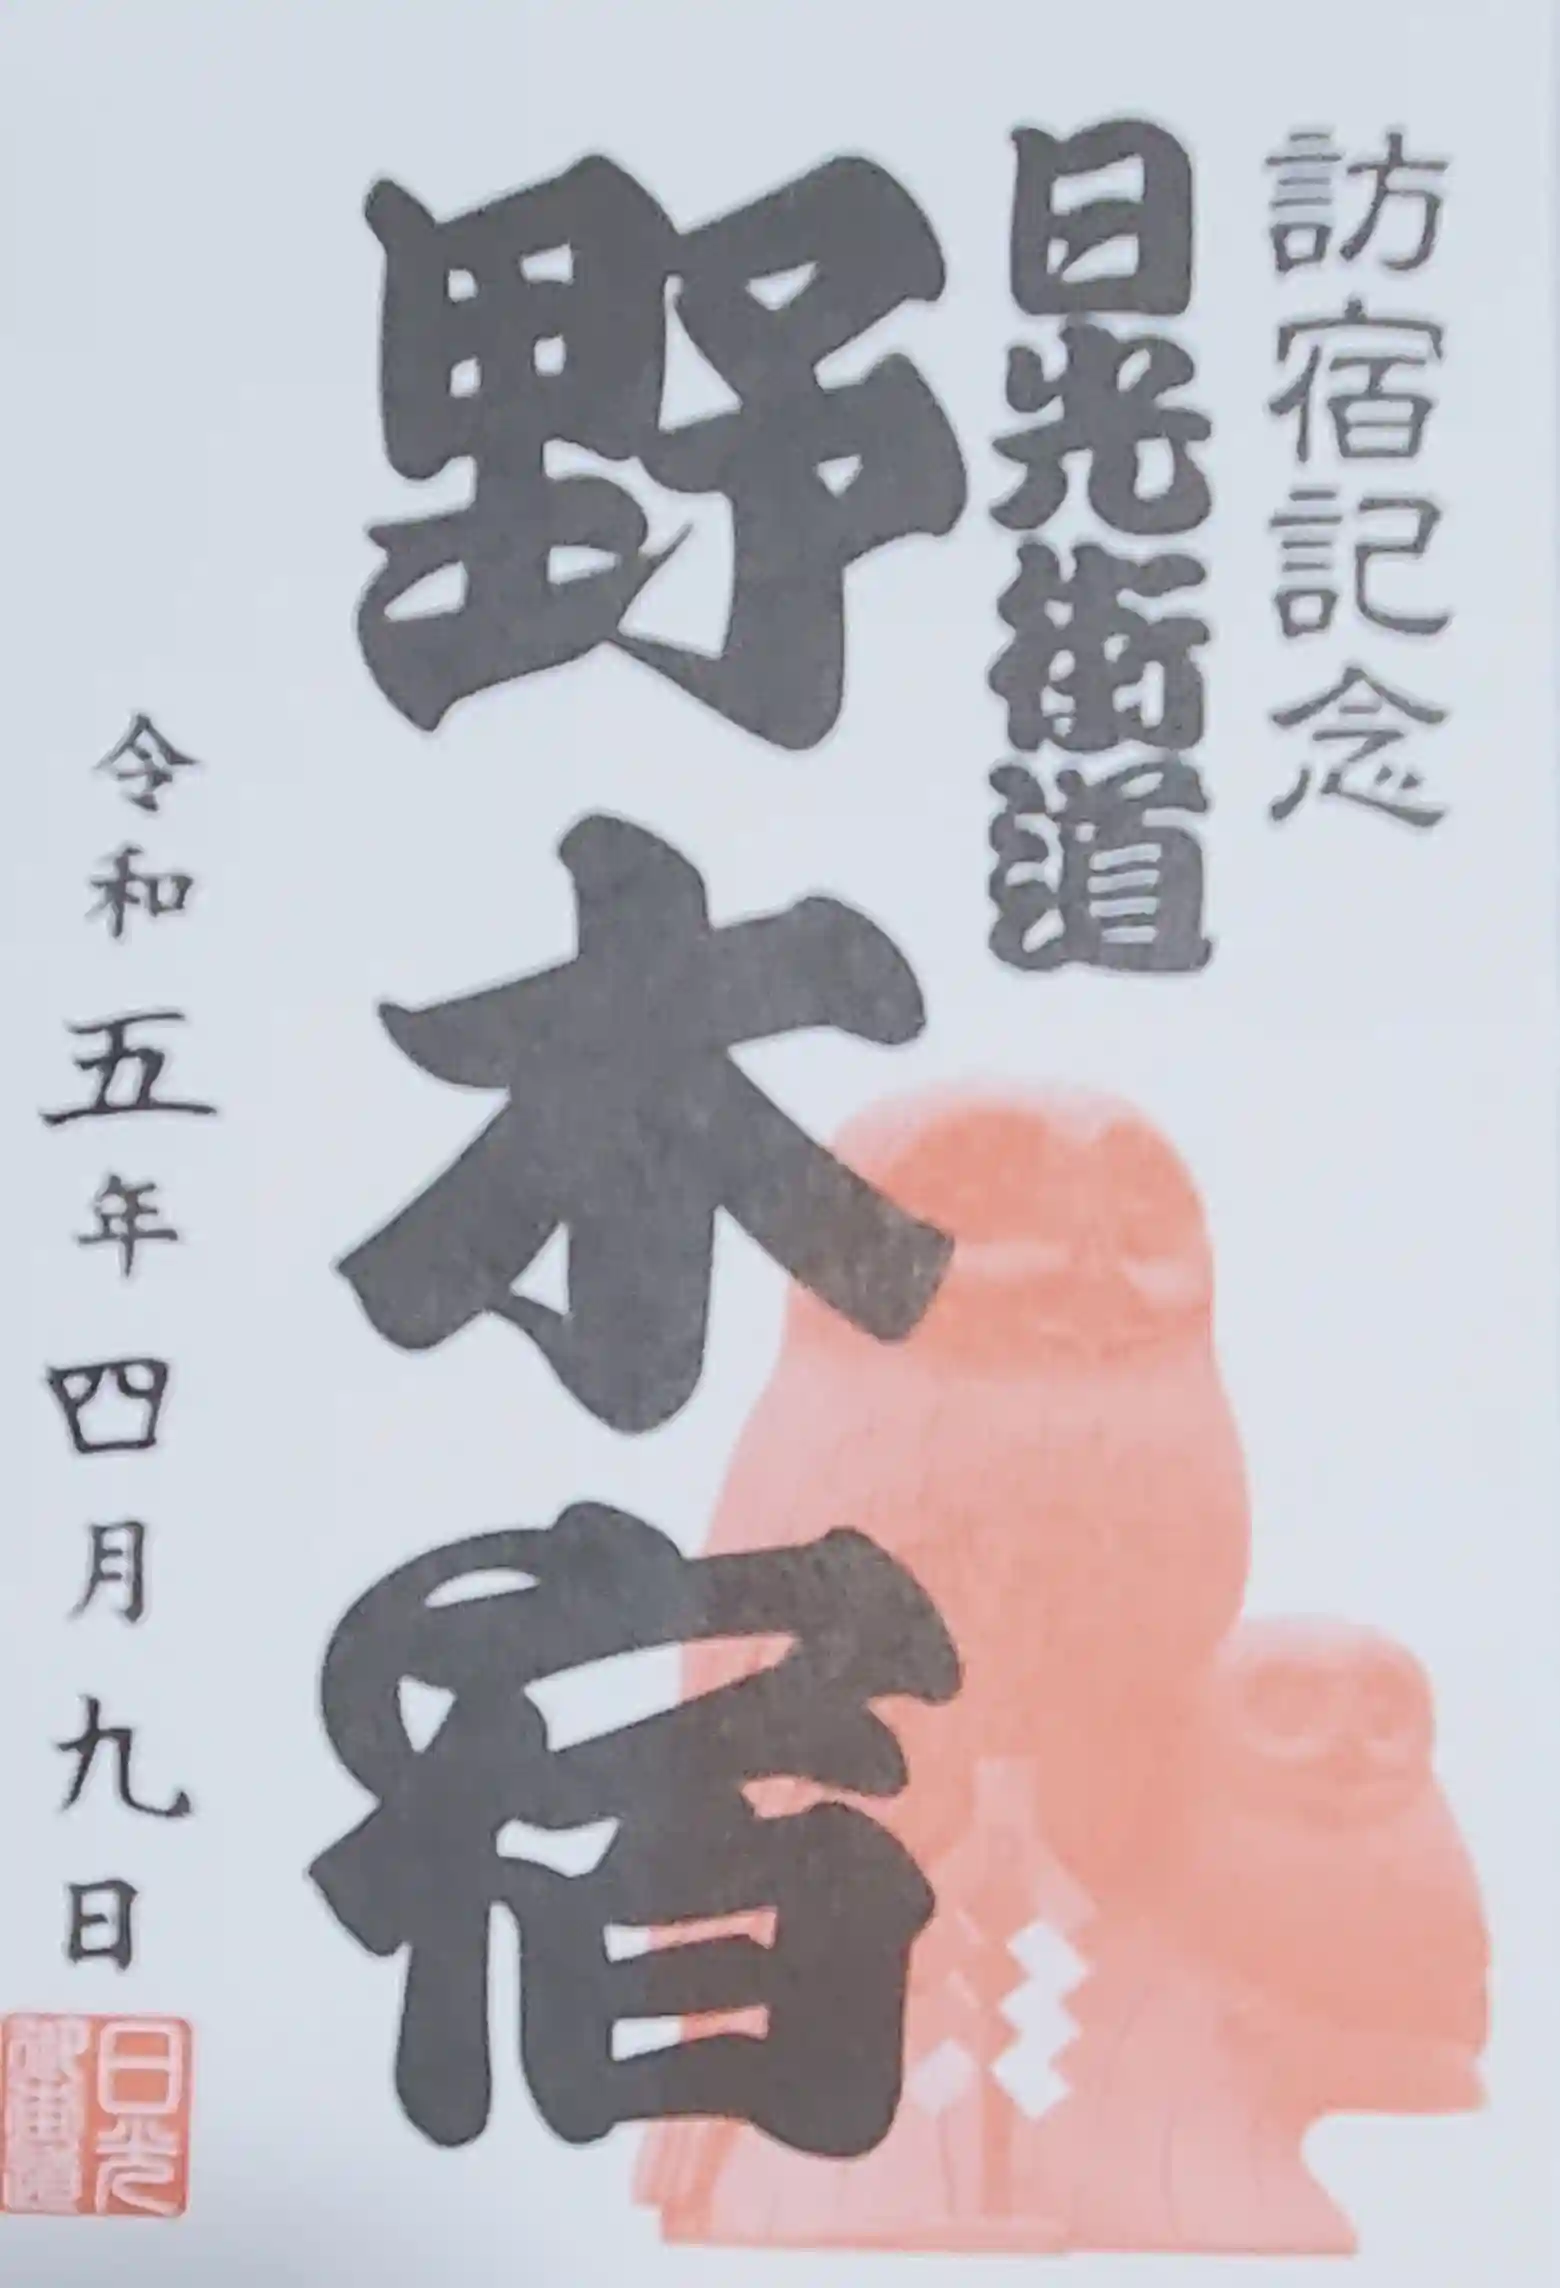 訪宿記念
日光街道
野木宿
令和五年四月九日
日光
街道